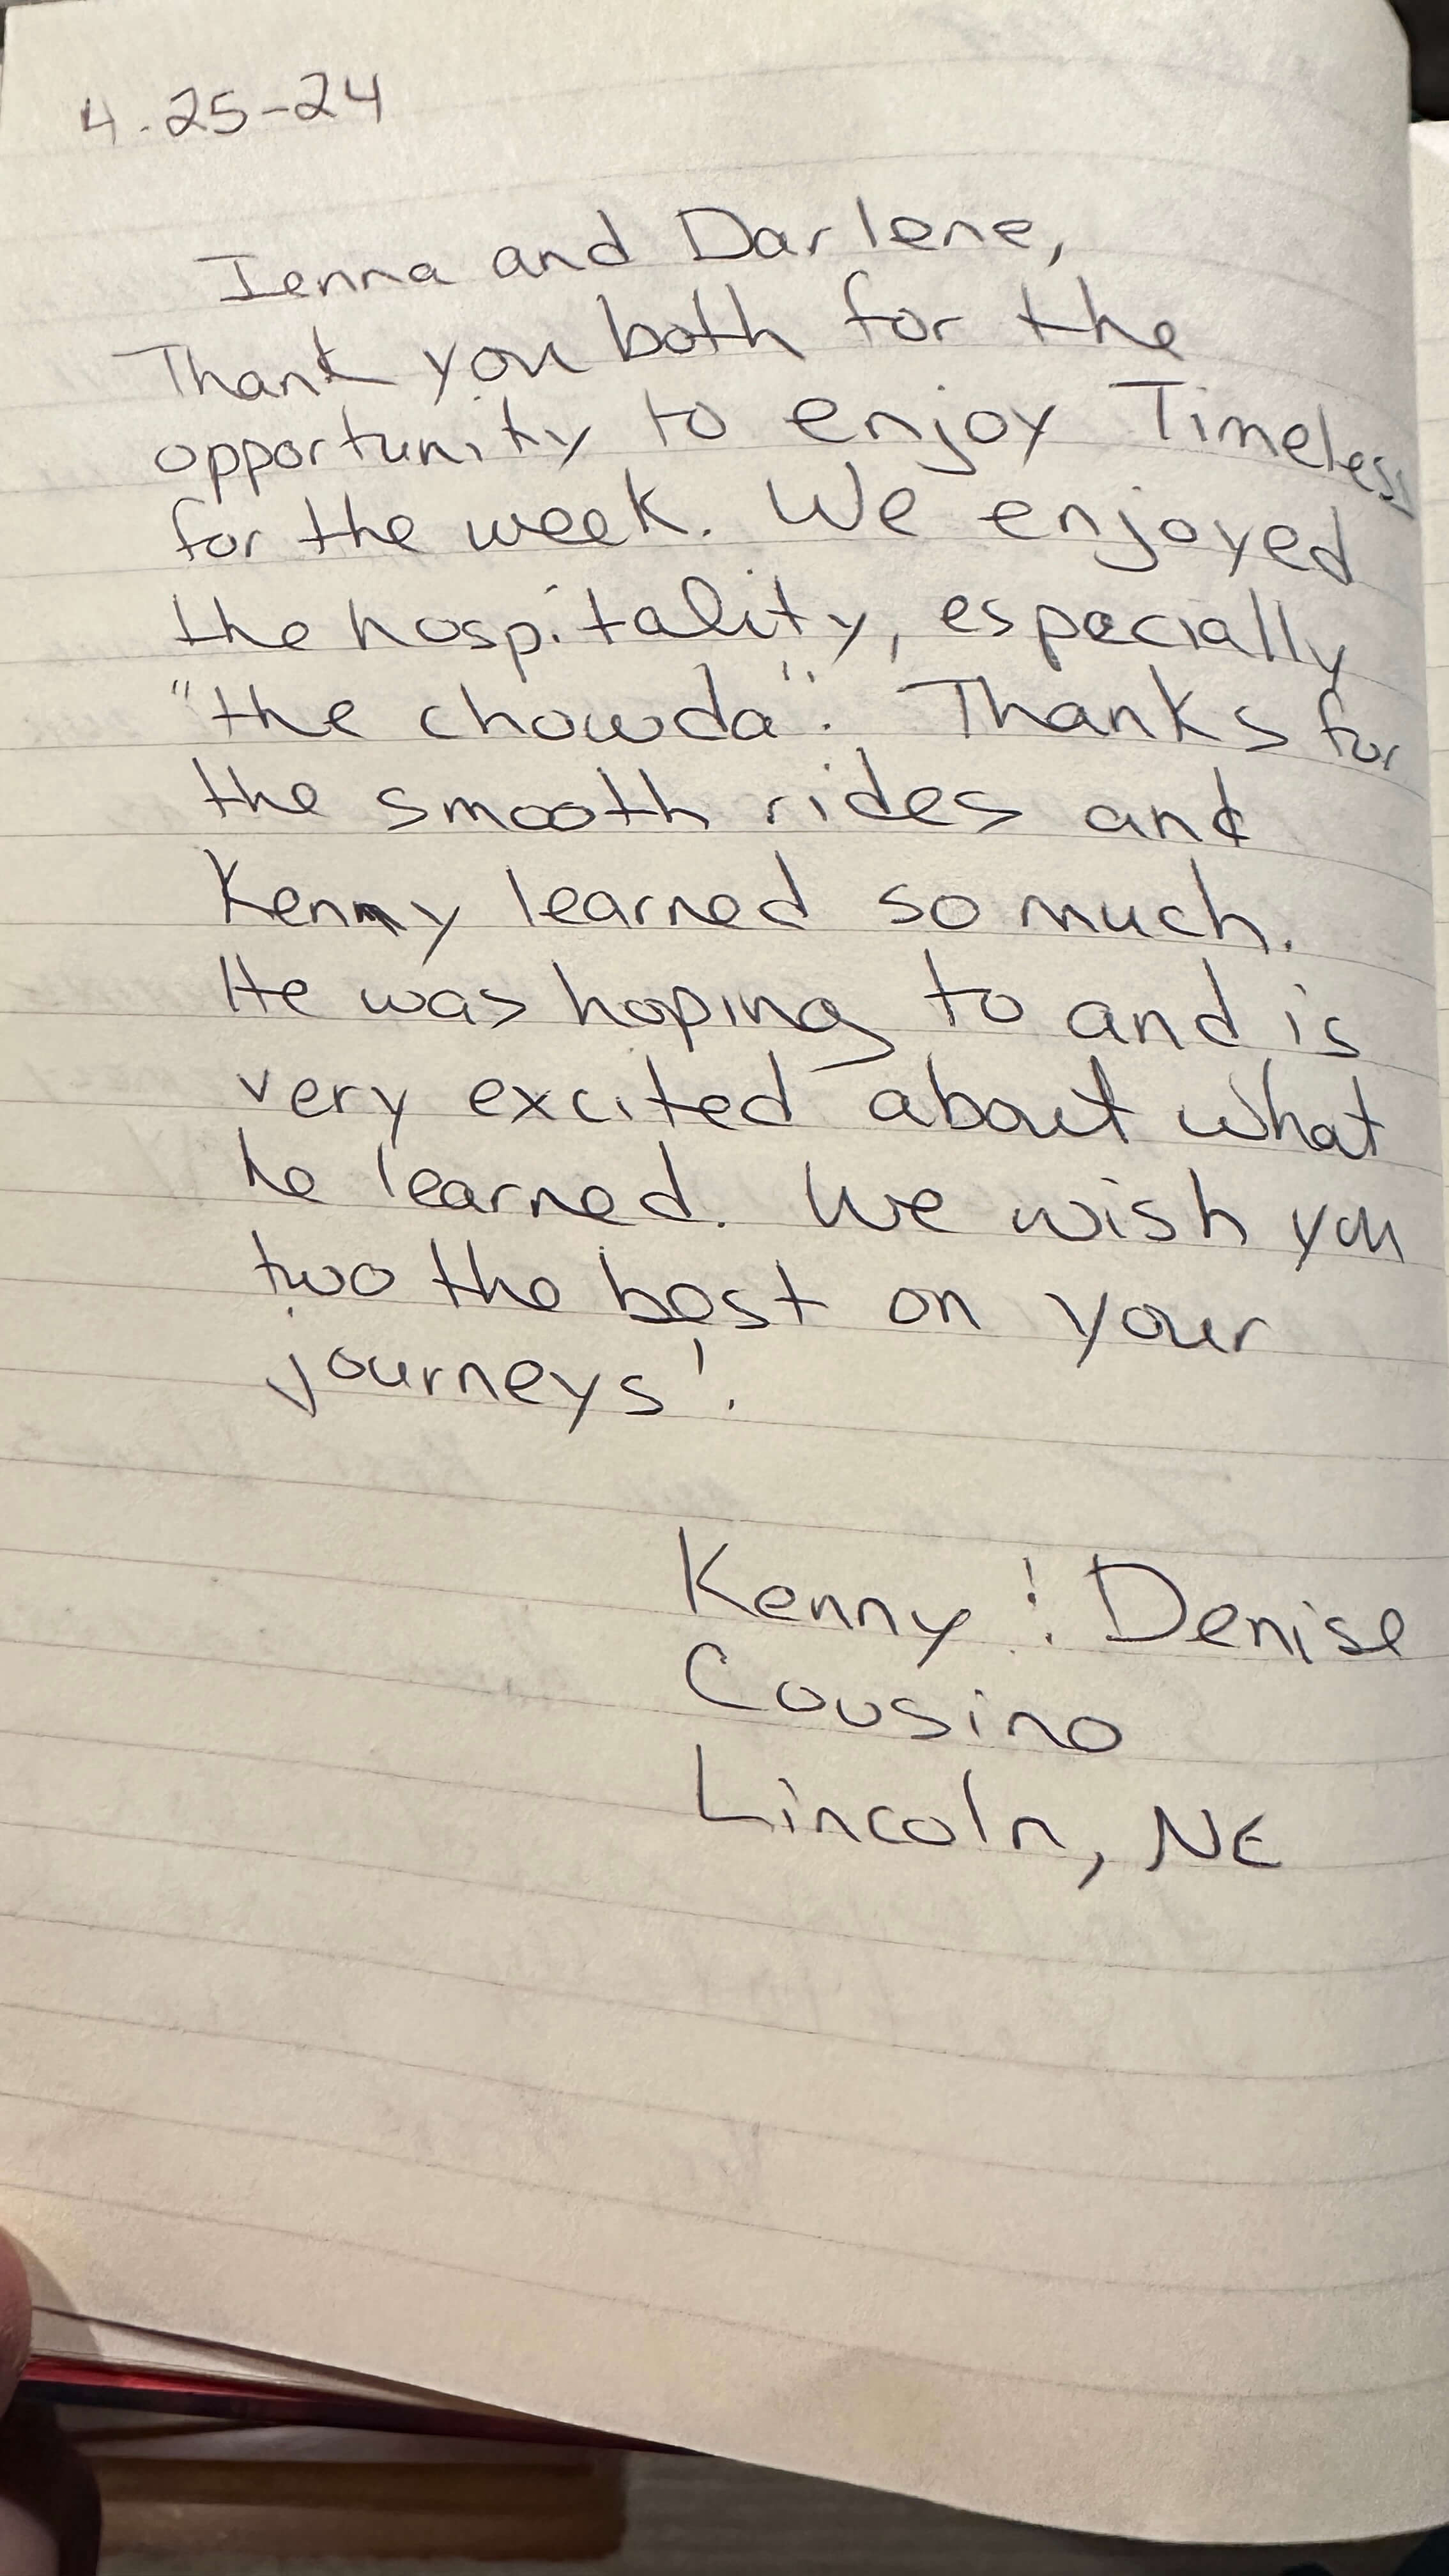 4-25-24
Ienna and Darlene,
Thank you both for the
opportunity to enjoy Timeless
for the week. We enjoyed
the hospitality, especially
"the chowda". Thanks for
the smooth rides and
Kenny learned so much.
He was hoping to and is
very excited about what
he learned. We wish you
two the best on your
journeys!
Kenny : Denise
Cousino
Lincoln, NE